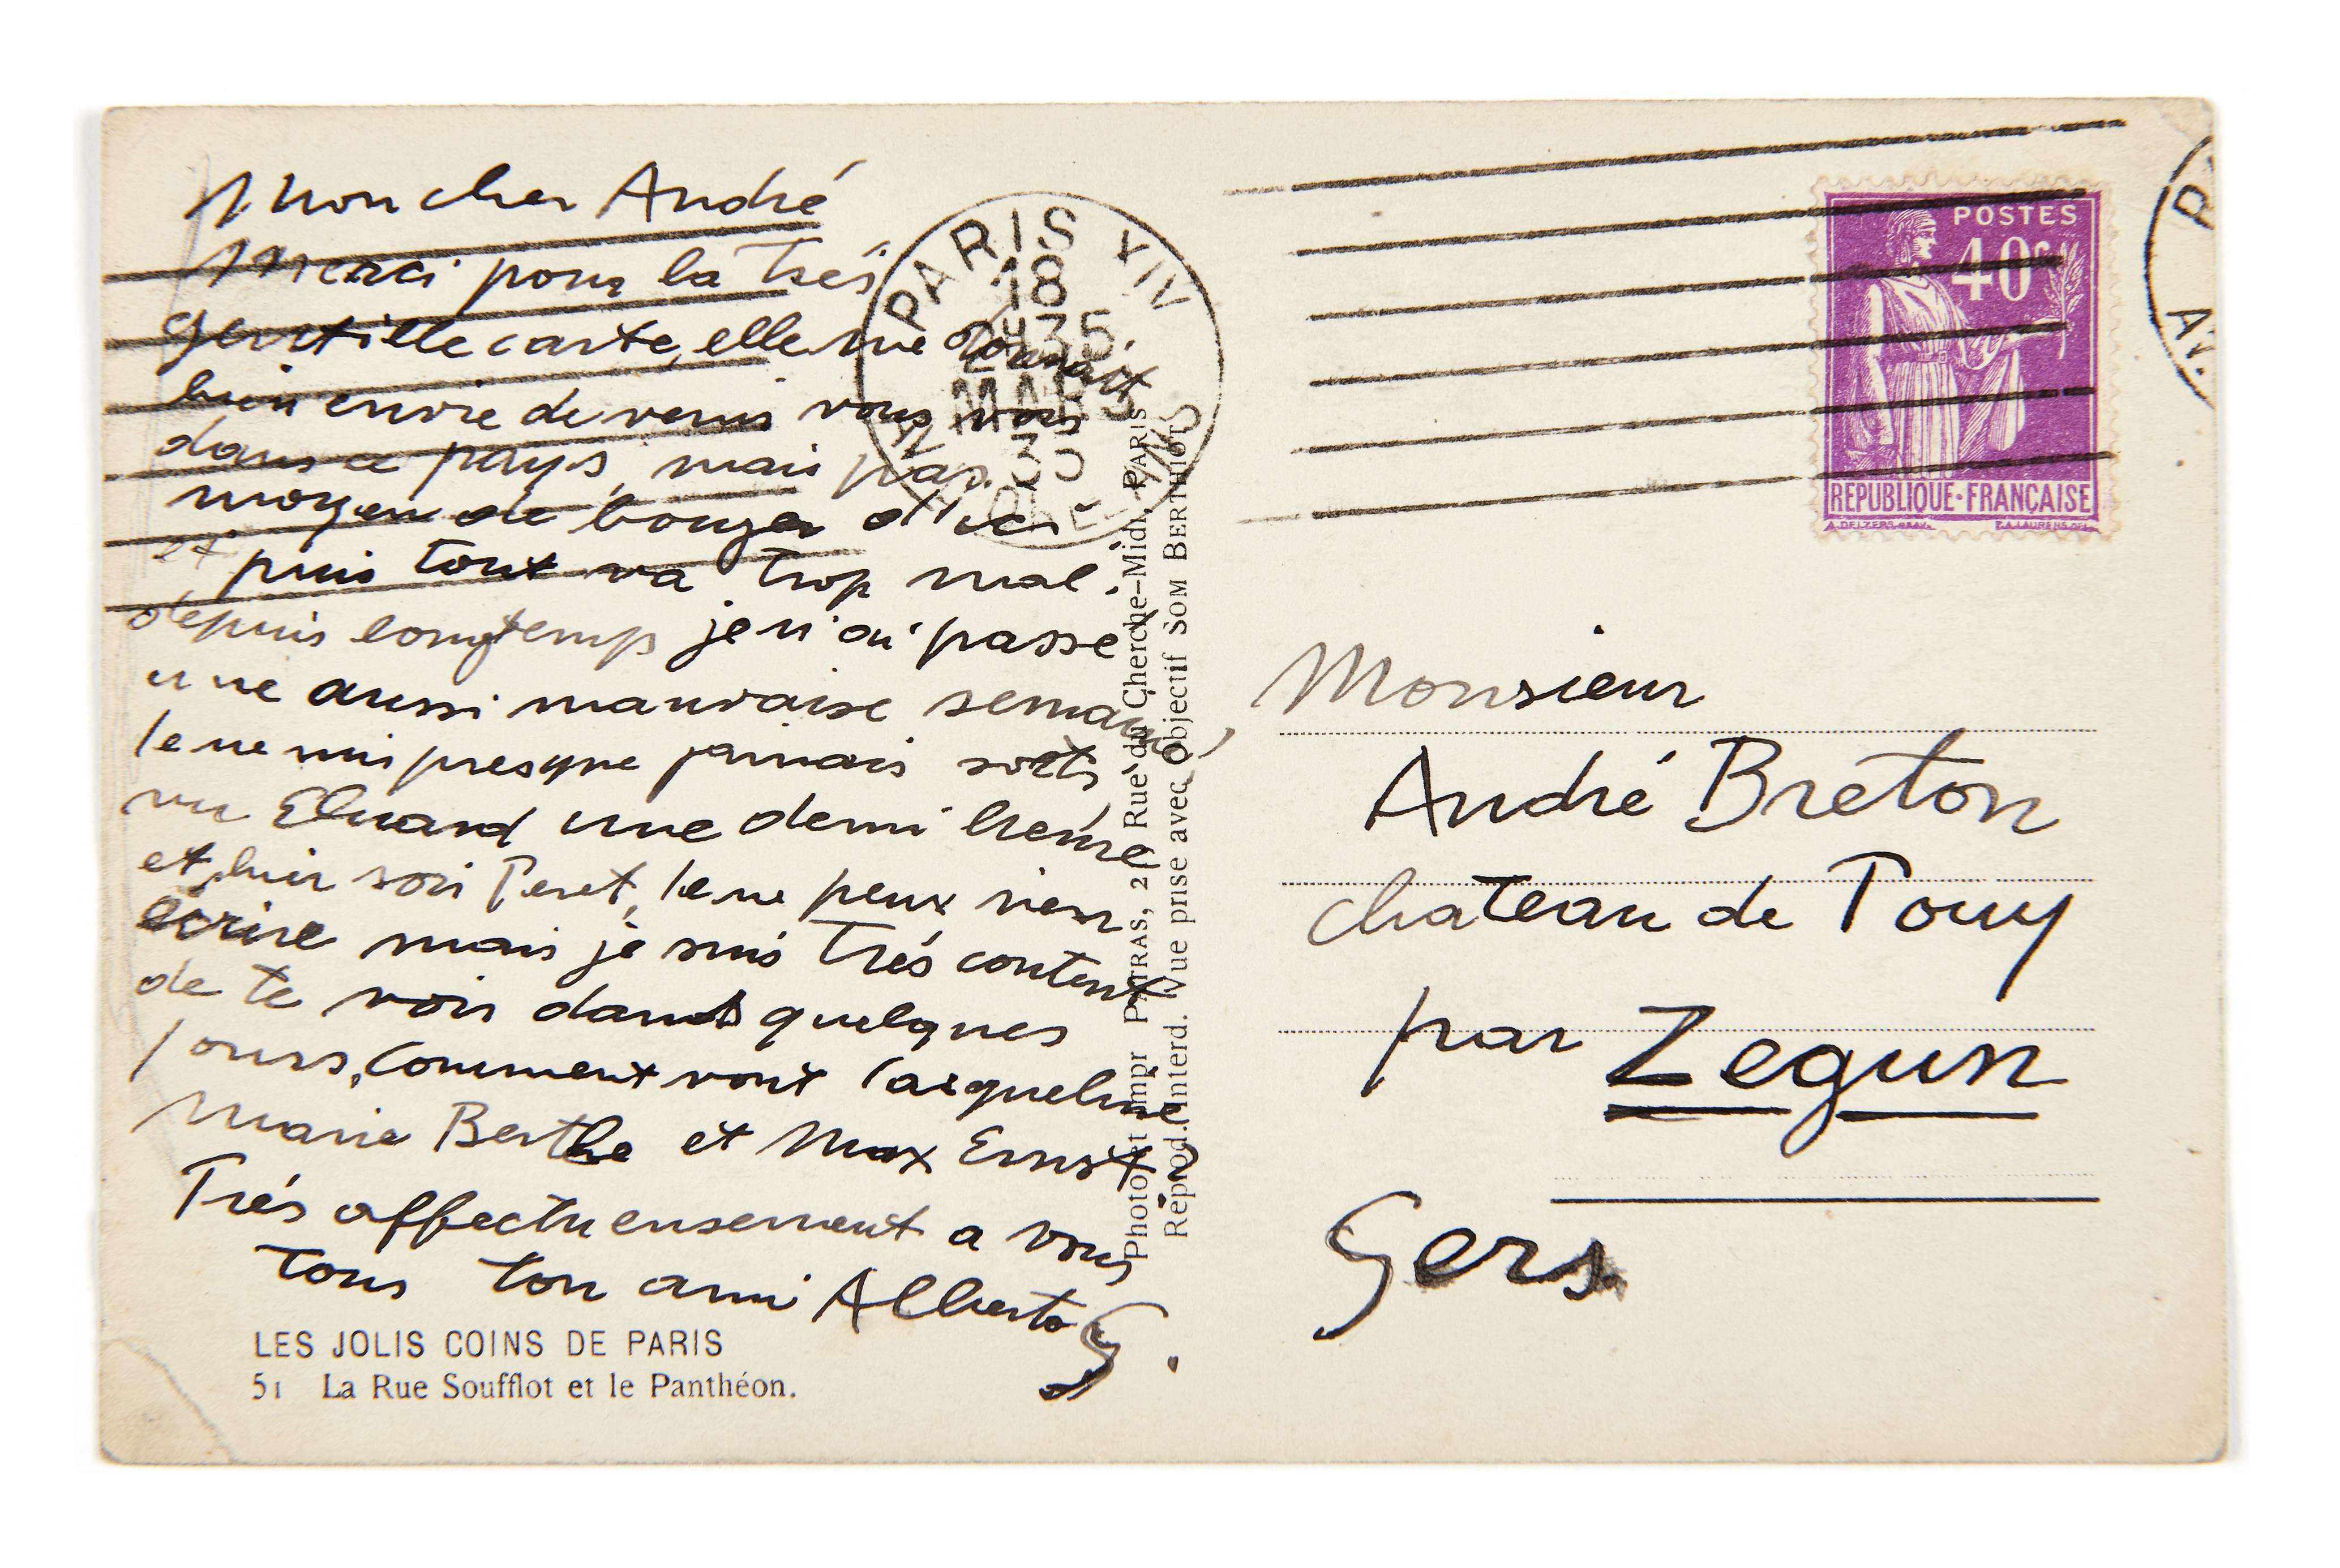 Mon cher André
Merci pour la trés
gentille carte, elle me donnait
bien envie de venir vous voir
dans ce pays, mais pas
moyen de bouger d'ici
et puis tout va trop mal.
depuis longtemps je n'ai passé
une aussi mauvaise semaine,
je ne suis presque jamais sorti,
vu Eluard une demi heure
et hier soir Peret, je ne peux rien
écrire mais je suis trés content
de te voir dans quelques
jours, comment vont Jacqueline
Marie Berthe et Max Ernst?
Trés affectueusement a vous
tous ton ami Alberto G.
LES JOLIS COINS DE PARIS
51 La Rue Soufflot et le Panthéon.
PARIS XIV
18
MARS
35
Photo et impr PATRAS, 2 Rue du Cherche-Midi, PARIS
Reprod. Interd. Vue prise avec Objectif SOM BERTHIOT
POSTES
40c
REPUBLIQUE·FRANÇAISE
P
AV.
Monsieur
André Breton
chateau de Pouy
par Zegun
Gers